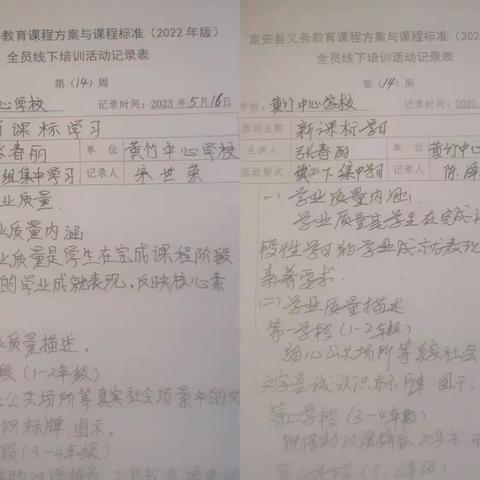 教育课程方案与课程标准（2022 年版）
全员线下培训活动记录表
第（14）周
心学校 记录时间：2023 年 5 月 16 日
新课标学习
张春丽 单 位 黄竹中心学校
组集中学习 记录人 宋世荣
业质量
业质量内涵
业质量是学生在完成课程阶段
的学业成就表现，反映核心素
业质量描述。
段（1-2年级）
公共场所等真实社会场景中的文
识标牌 图示。
段（3-4年级）
定安县义务教育课程方案与课程标准（202
全员线下培训活动记录表
第（14）周
学校：黄竹中心学校 记录时间：2023
活动主题 新课标学习
主讲人 张春丽 单 位 黄竹中心
活动形式 线下集中学习 记录人 陈
一、学业质量内涵
学业质量是学生在完成
段性学习的学业成就表现
素养要求.
（二）学业质量描述
第一学段（1-2年级）
公共场所等真实社会
文字尝试认识标牌 图示.
第二学段（3-4年级）